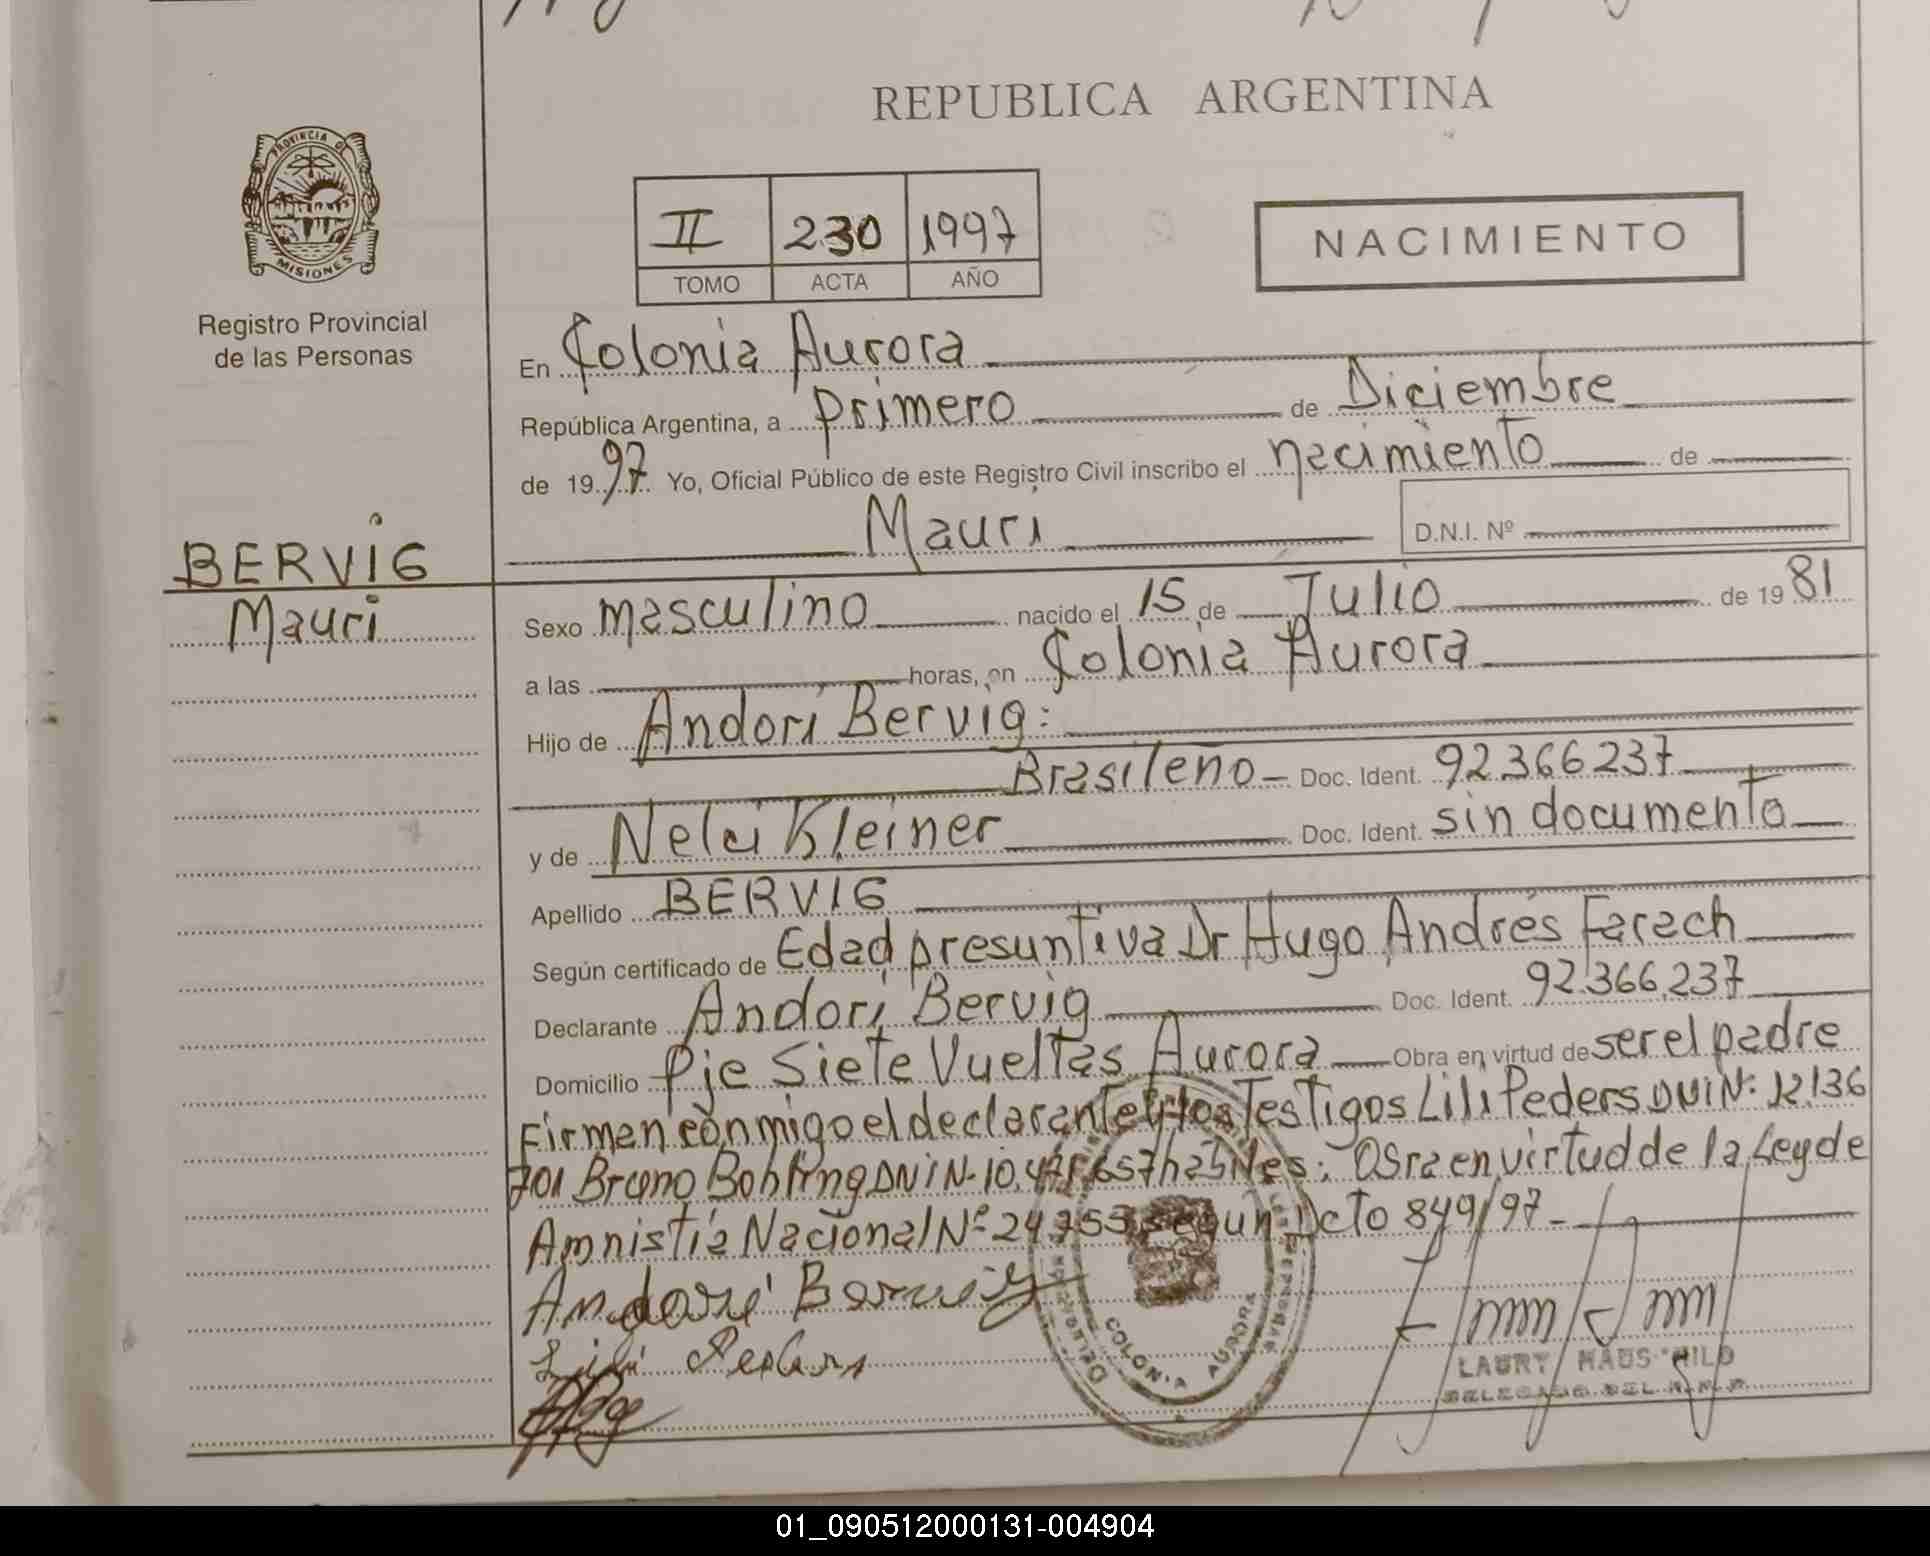 REPUBLICA ARGENTINA
PROVINCIA DE
MISIONES
Registro Provincial
de las Personas
II 230 1997
TOMO ACTA AÑO
NACIMIENTO
En Colonia Aurora
República Argentina, a primero de Diciembre
de 1997 Yo, Oficial Público de este Registro Civil inscribo el nacimiento de
Mauri D.N.I. Nº
BERVIG
Mauri
Sexo masculino nacido el 15 de Julio de 1981
a las horas, en Colonia Aurora
Hijo de Andori Bervig:
Brasileño Doc. Ident. 92.366237
y de Nelci Kleiner Doc. Ident. sin documento
Apellido BERVIG
Según certificado de Edad presuntiva Dr Hugo Andrés Farach
Declarante Andori Bervig Doc. Ident. 92.366.237
Domicilio Pje Siete Vueltas Aurora Obra en virtud de ser el padre
Firman conmigo el declarante y los Testigos Lili Peders DNI Nº 12.136
701 Bruno Bohling DNI N. 10. 657 habiles; Obra en virtud de la Ley de
Amnistía Nacional Nº 24755 según Dcto 849/97-
Andori Bervig
Lili Peders
COLONIA AURORA
LAURY HAUS
DELEGADO DEL R.N.P.
01_090512000131-004904